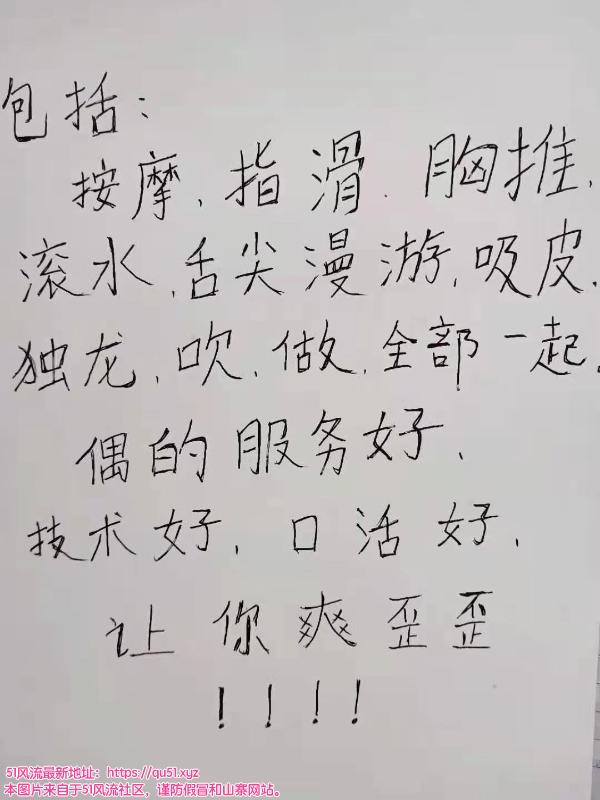 包括：
按摩、指滑、胸推、
滚水、舌尖漫游、吸皮、
独龙、吹、做、全部一起。
偶的服务好、
技术好、口活好、
让你爽歪歪
！！！！
51风流最新地址：https://qu51.xyz
本图片来自于51风流社区，谨防假冒和山寨网站。